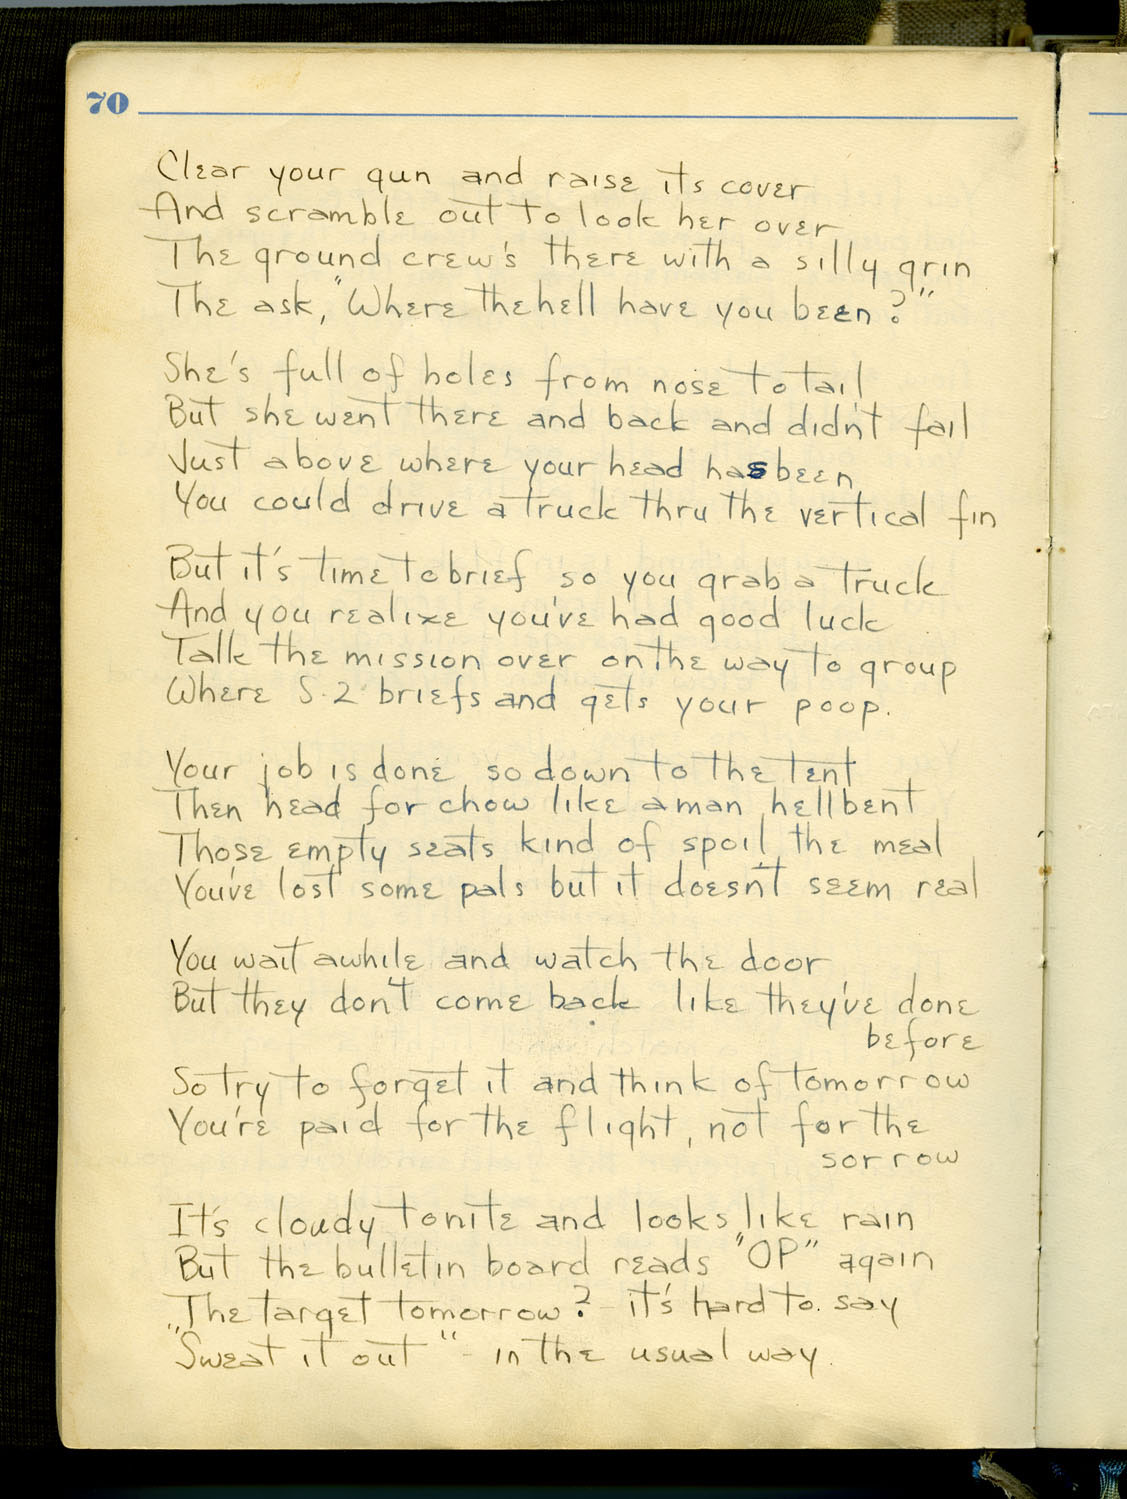 70
Clear your gun and raise its cover
And scramble out to look her over
The ground crew's there with a silly grin
The ask, "Where the hell have you been?"
She's full of holes from nose to tail
But she went there and back and didn't fail
Just above where your head has been
You could drive a truck thru the vertical fin
But it's time to brief so you grab a truck
And you realize you've had good luck
Talk the mission over on the way to group
Where S-2 briefs and gets your poop.
Your job is done so down to the tent
Then head for chow like a man hellbent
Those empty seats kind of spoil the meal
You've lost some pals but it doesn't seem real
You wait awhile and watch the door
But they don't come back like they've done
before
So try to forget it and think of tomorrow
You're paid for the flight, not for the
sorrow
It's cloudy tonite and looks like rain
But the bulletin board reads "OP" again
The target tomorrow? - it's hard to say
"Sweat it out" - in the usual way.